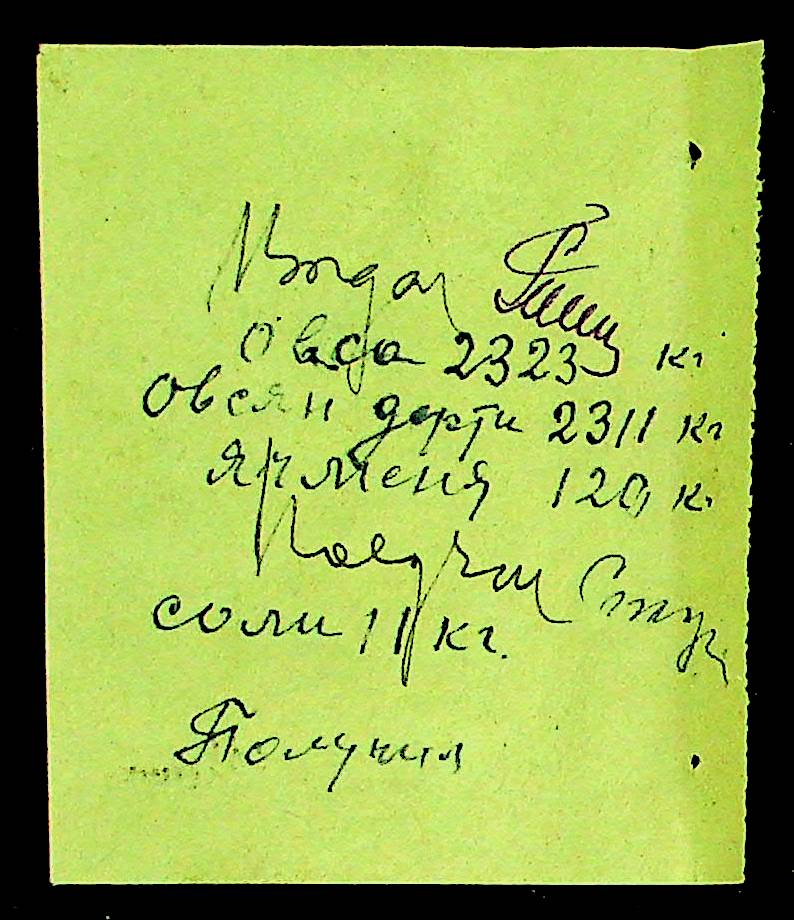 Овса 2323 кг
Овсян дерти 2311 кг
Ячменя 120 кг
Получил
соли 11 кг.
Получил